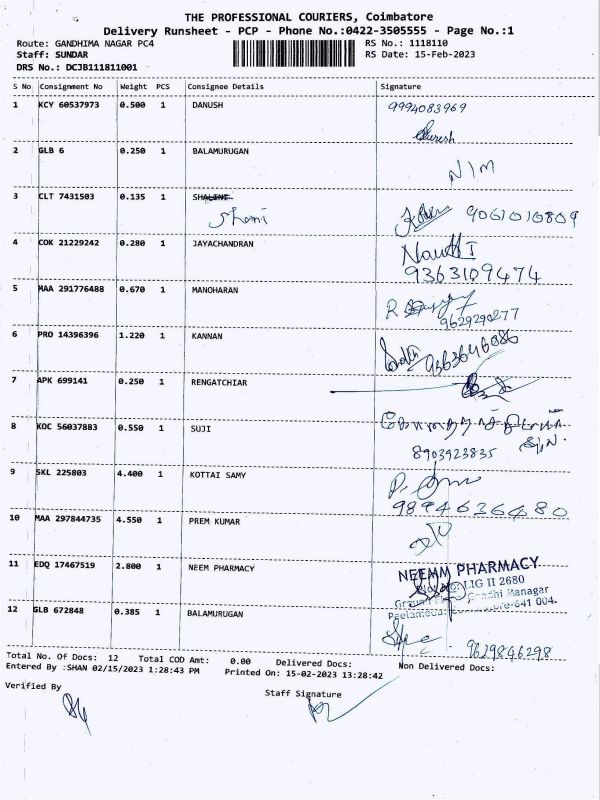 THE PROFESSIONAL COURIERS, Coimbatore
Delivery Runsheet - PCP - Phone No.:0422-3505555 - Page No.:1
Route: GANDHIMA NAGAR PC4 RS No.: 1118110
Staff: SUNDAR RS Date: 15-Feb-2023
DRS No.: DCJB111811001
S No Consignment No Weight PCS Consignee Details Signature
1 KCY 60537973 0.500 1 DANUSH 9994083969
2 GLB 6 0.250 1 BALAMURUGAN
N/M
3 CLT 7431503 0.135 1 SHALINI
9061010809
4 COK 21229242 0.280 1 JAYACHANDRAN
9363109474
5 MAA 291776488 0.670 1 MANOHARAN
9629290277
6 PRO 14396396 1.220 1 KANNAN
9363646086
7 APK 699141 0.250 1 RENGATCHIAR
8 KOC 56037883 0.550 1 SUJI
8903923835
9 SKL 225803 4.400 1 KOTTAI SAMY
9894636480
10 MAA 297844735 4.550 1 PREM KUMAR
11 EDQ 17467519 2.800 1 NEEM PHARMACY
NEEMM PHARMACY
LIG II 2680
Gandhi Managar
641 004.
12 GLB 672848 0.385 1 BALAMURUGAN
9629846298
Total No. Of Docs: 12 Total COD Amt: 0.00 Delivered Docs: Non Delivered Docs:
Entered By :SHAN 02/15/2023 1:28:43 PM Printed On: 15-02-2023 13:28:42
Verified By Staff Signature